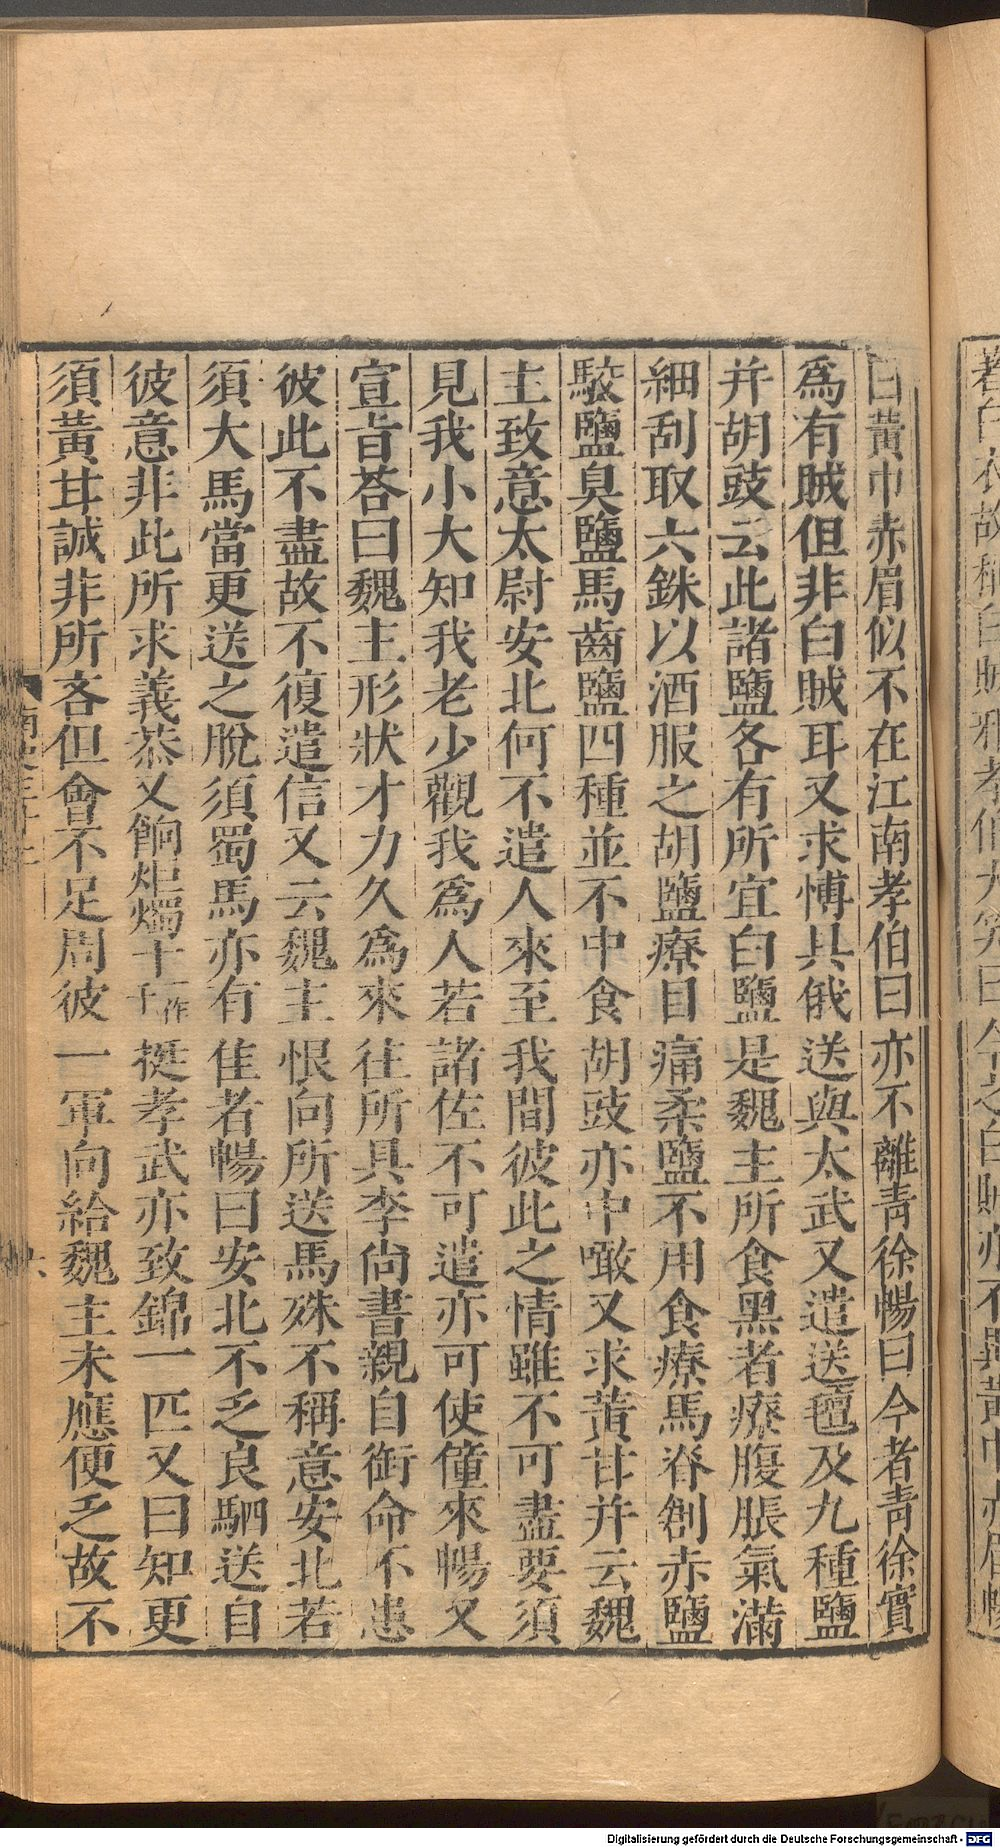 曰黃巾赤眉似不在江南孝伯曰亦不離青徐暢曰今者青徐實
爲有賊但非白賊耳又求博具俄送與太武又遣送氊及九種鹽
幷胡豉云此諸鹽各有所宜白鹽是魏主所食黑者療腹脹氣滿
細刮取六銖以酒服之胡鹽療目痛柔鹽不用食療馬脊創赤鹽
駮鹽臭鹽馬齒鹽四種並不中食胡豉亦中噉又求黃甘幷云魏
主致意太尉安北何不遣人來至我間彼此之情雖不可盡要須
見我小大知我老少觀我爲人若諸佐不可遣亦可使僮來暢又
宣旨荅曰魏主形狀才力久爲來往所具李尚書親自銜命不患
彼此不盡故不復遣信又云魏主恨向所送馬殊不稱意安北若
須大馬當更送之脫須蜀馬亦有佳者暢曰安北不乏良駟送自
彼意非此所求義恭又餉炬燭十一作千挺孝武亦致錦一匹又曰知更
須黃甘誠非所吝但會不足周彼一軍向給魏主未應便乏故不
Digitalisierung gefördert durch die Deutsche Forschungsgemeinschaft - DFG